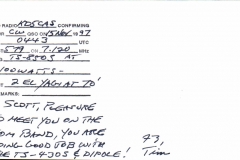 RADIO KD5CAS CONFIRMING
CW QSO ON 15 NOV 1997
0443 UTC
579 ON 7.120 MHz
TS-850S AT
100WATTS -
2 EL YAGI AT 70'
MARKS:
SCOTT, PLEASURE
MEET YOU ON THE
BAND, YOU ARE
ING GOOD JOB WITH
TS-430S & DIPOLE!
73,
Tim